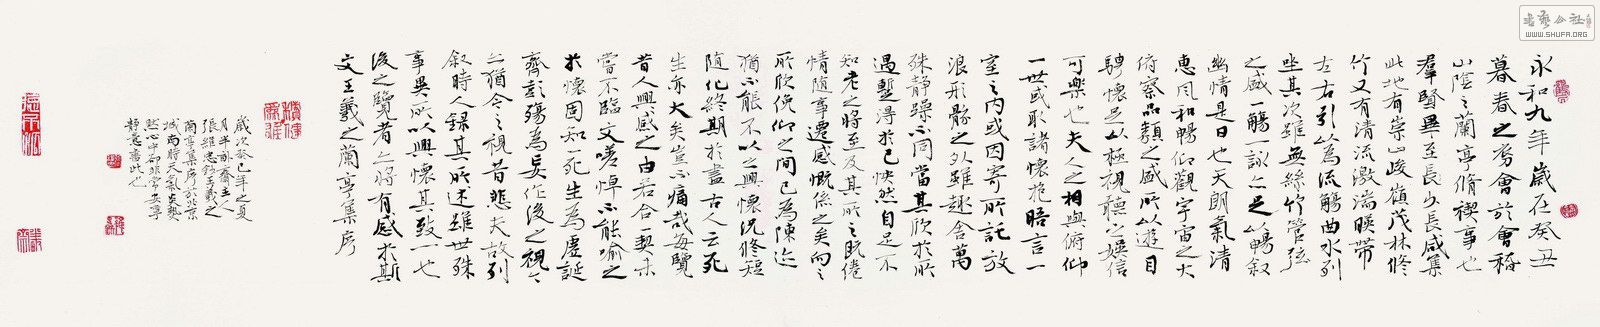 永和九年歲在癸丑
暮春之初會於會稽
山陰之蘭亭脩禊事也
羣賢畢至長少長咸集
此地有崇山峻嶺茂林修
竹又有清流激湍暎帶
左右引以為流觴曲水列
坐其次雖無絲竹管弦
之盛一觴一詠亦足以暢敘
幽情是日也天朗氣清
惠風和暢仰觀宇宙之大
俯察品類之盛所以遊目
騁懷足以極視聽之娛信
可樂也夫人之相與俯仰
一世或取諸懷抱晤言一
室之內或因寄所託放
浪形骸之外雖趣舍萬
殊靜躁不同當其欣於所
遇蹔得於己怏然自足不
知老之將至及其所之既倦
情隨事遷感慨係之矣向之
所欣俛仰之間已為陳迹
猶不能不以之興懷況修短
隨化終期於盡古人云死
生亦大矣豈不痛哉每覽
昔人興感之由若合一契未
嘗不臨文嗟悼不能喻之
於懷固知一死生為虛誕
齊彭殤為妄作後之視今
亦猶今之視昔悲夫故列
敘時人錄其所述雖世殊
事異所以興懷其致一也
後之覽者亦將有感於斯
文王羲之蘭亭集序
歲次癸巳年之夏
月半 齋主人
張維忠錄王羲之
蘭亭集序於北京
城南時天氣炎熱
然心中卻非常安寧
靜 書此也
WWW.SHUFA.ORG